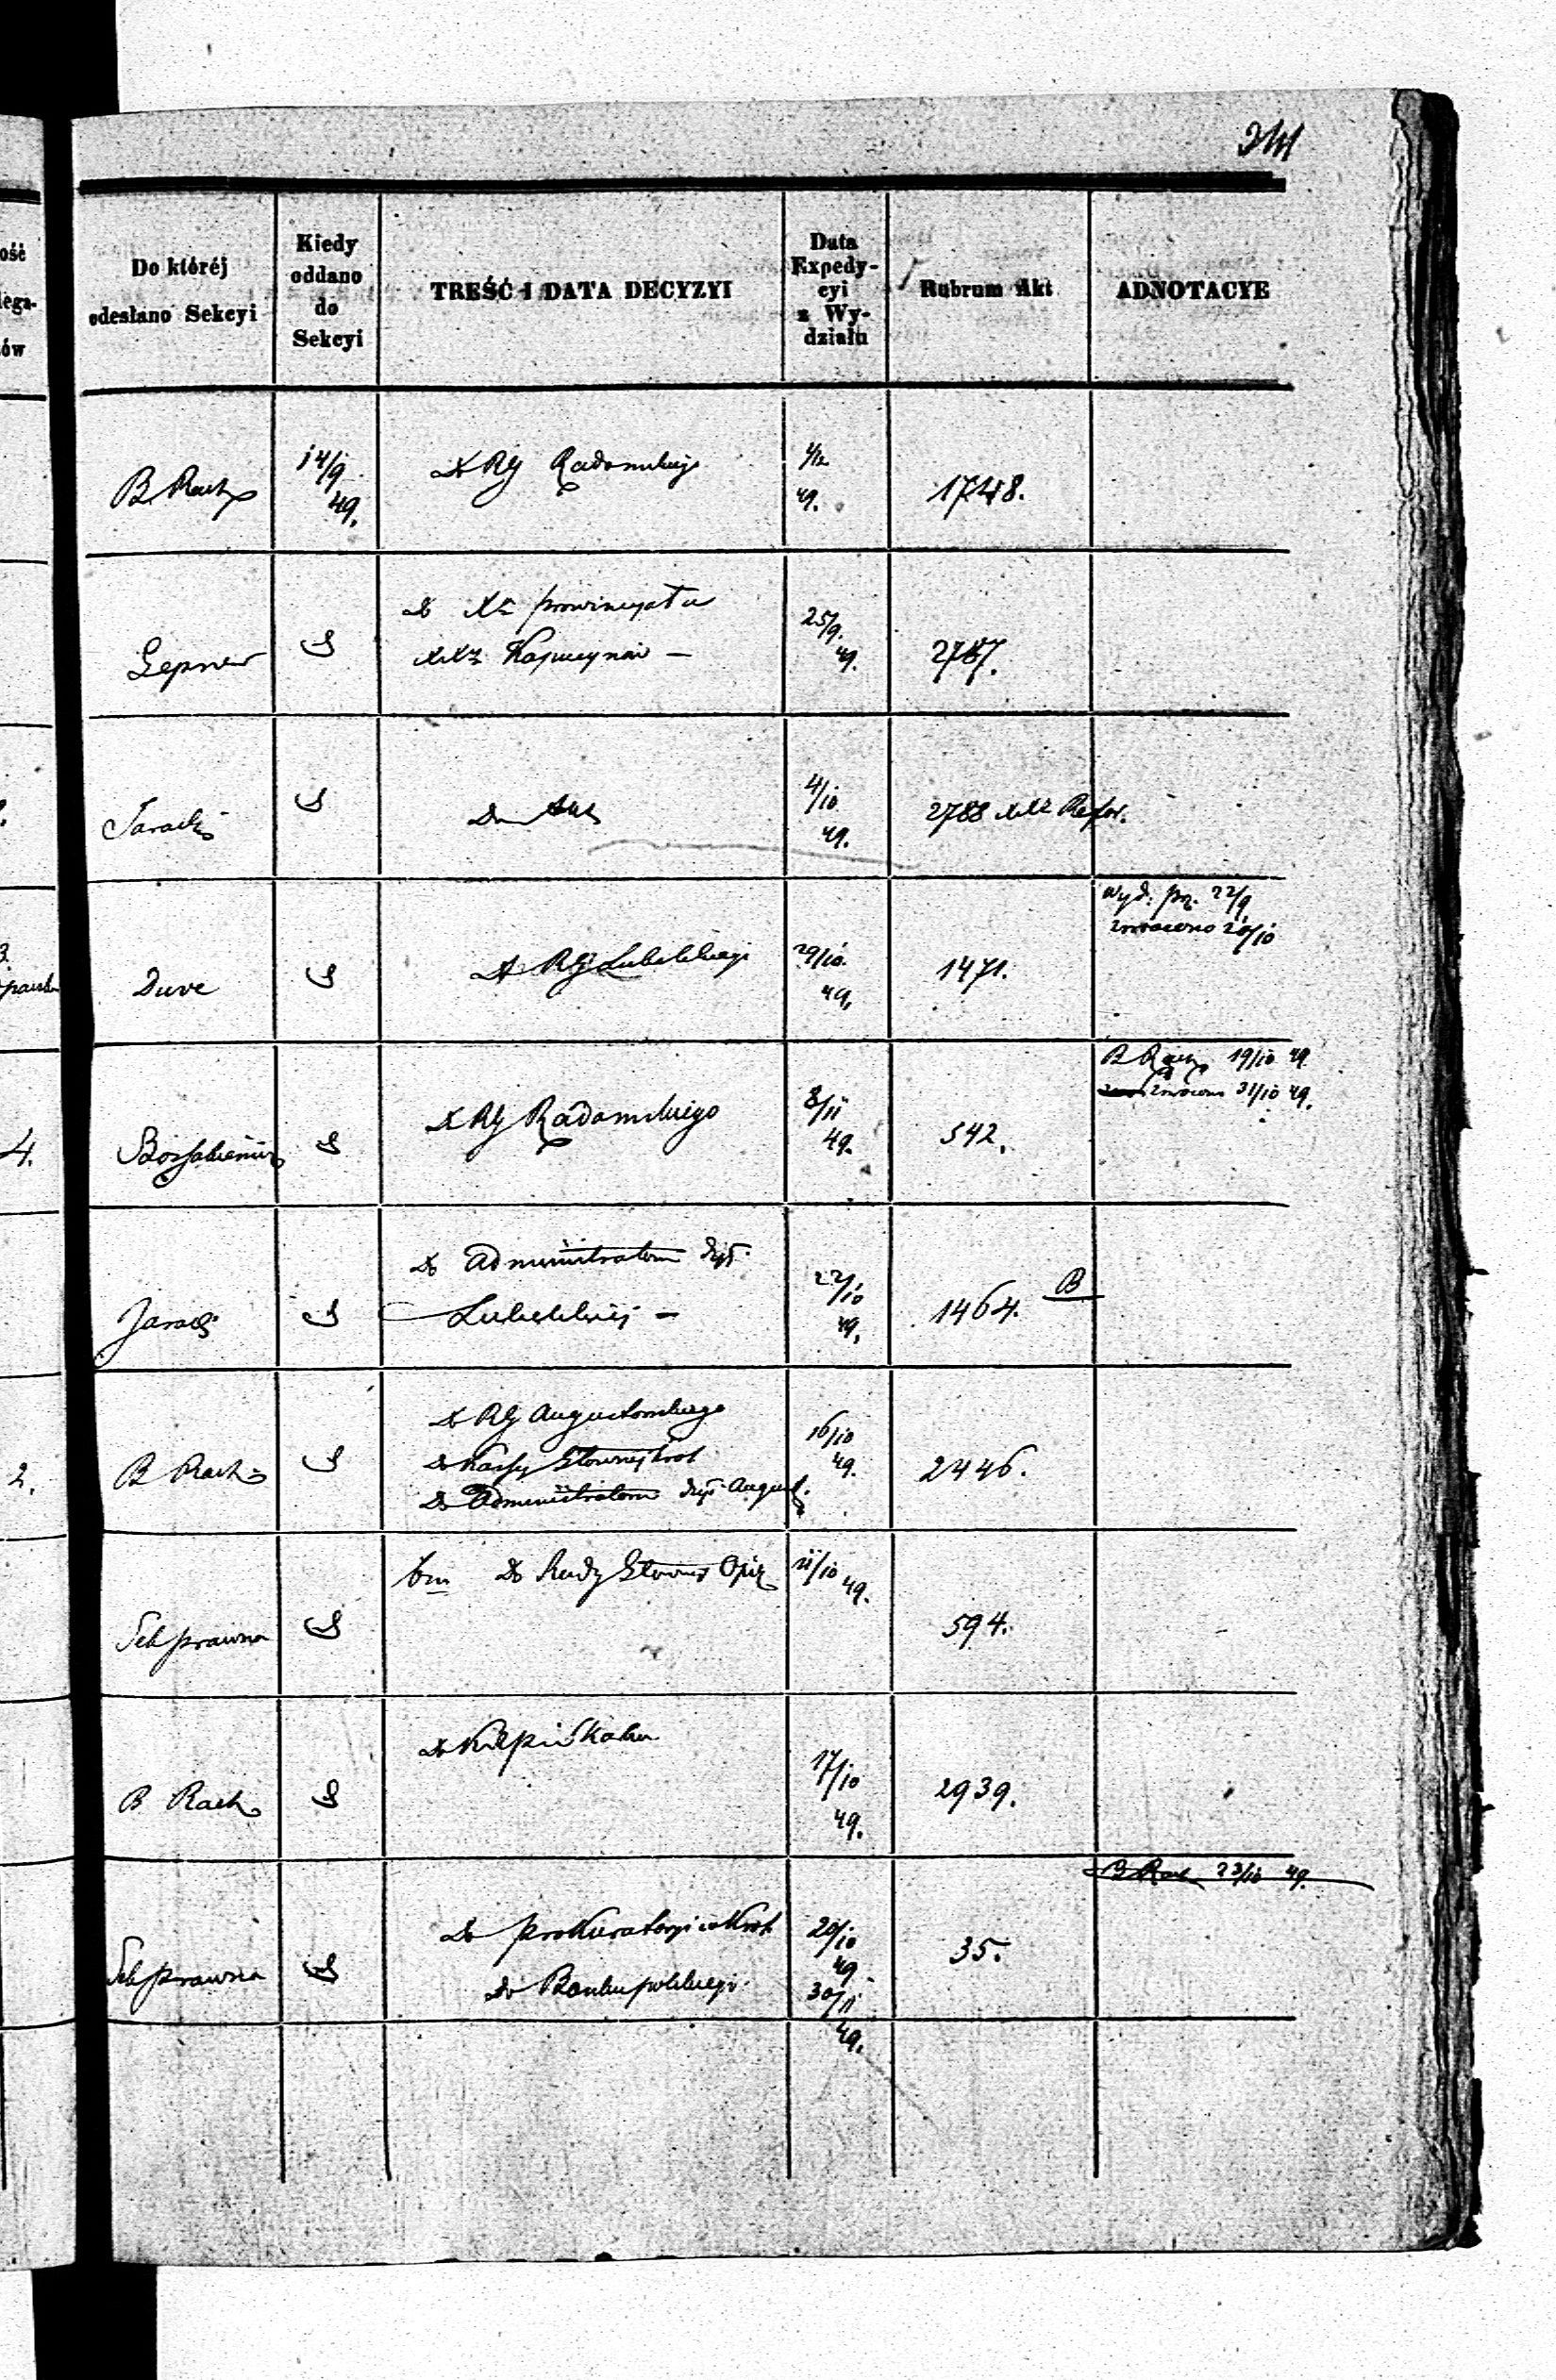 Do któréj
odesłano Sekcyi
Kiedy
oddano
do
Sekcyi
TREŚĆ I DATA DECYZYI
Data
Expedy-
cyi
z Wy-
działu
Rubrum Akt
ADNOTACYE
B Rach
14/9
49.
Do RG Radomskiego
4/12
49.
1748.
Lepner
Do prowincyała
Kapucynów —
25/9.
49.
2787.
Jaracki
4/10
49.
2788 Refor.
Duve
Do RG Lubelskiego
29/10.
49.
1471.
wyd: 22/9
zwrócono 20/10
Do RG Radomskiego
8/11
49.
542.
B Rach 19/10 49.
zwrócono 31/10 49.
Jaracki
Do Administratora Dyec.
Lubelskiej —
22/10
49.
1464. B
B Rach
Do RG Augustowskiego
Do Kassy Głównej Król
Do Administratora Dyec. August.
16/10
49.
2446.
Sek prawna
Do Rady Głównej Opiek
11/10
49.
594.
B Rach
17/10
49.
2939.
Sek prawna
Do prokuratoryi w Król
Do Banku polskiego.
20/10
49.
30/11
49.
35.
B Rach 23/10 49.